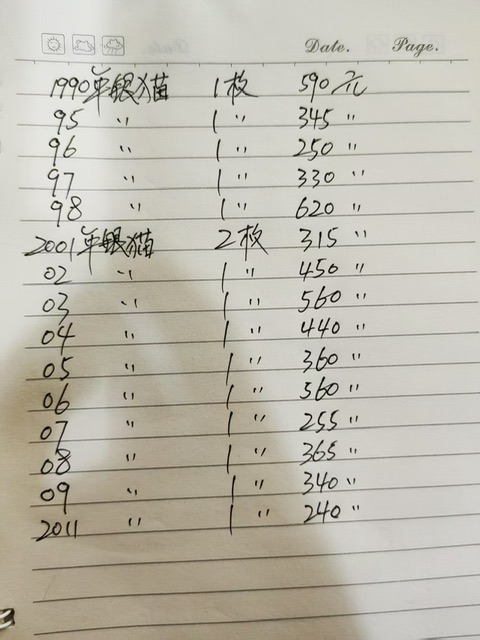 Date. Page.
1990年银猫 1枚 590元
95 〃 1〃 345〃
96 〃 1〃 250〃
97 〃 1〃 330〃
98 〃 1〃 620〃
2001年银猫 2枚 315〃
02 〃 1〃 450〃
03 〃 1〃 560〃
04 〃 1〃 440〃
05 〃 1〃 360〃
06 〃 1〃 560〃
07 〃 1〃 255〃
08 〃 1〃 365〃
09 〃 1〃 340〃
2011 〃 1〃 240〃